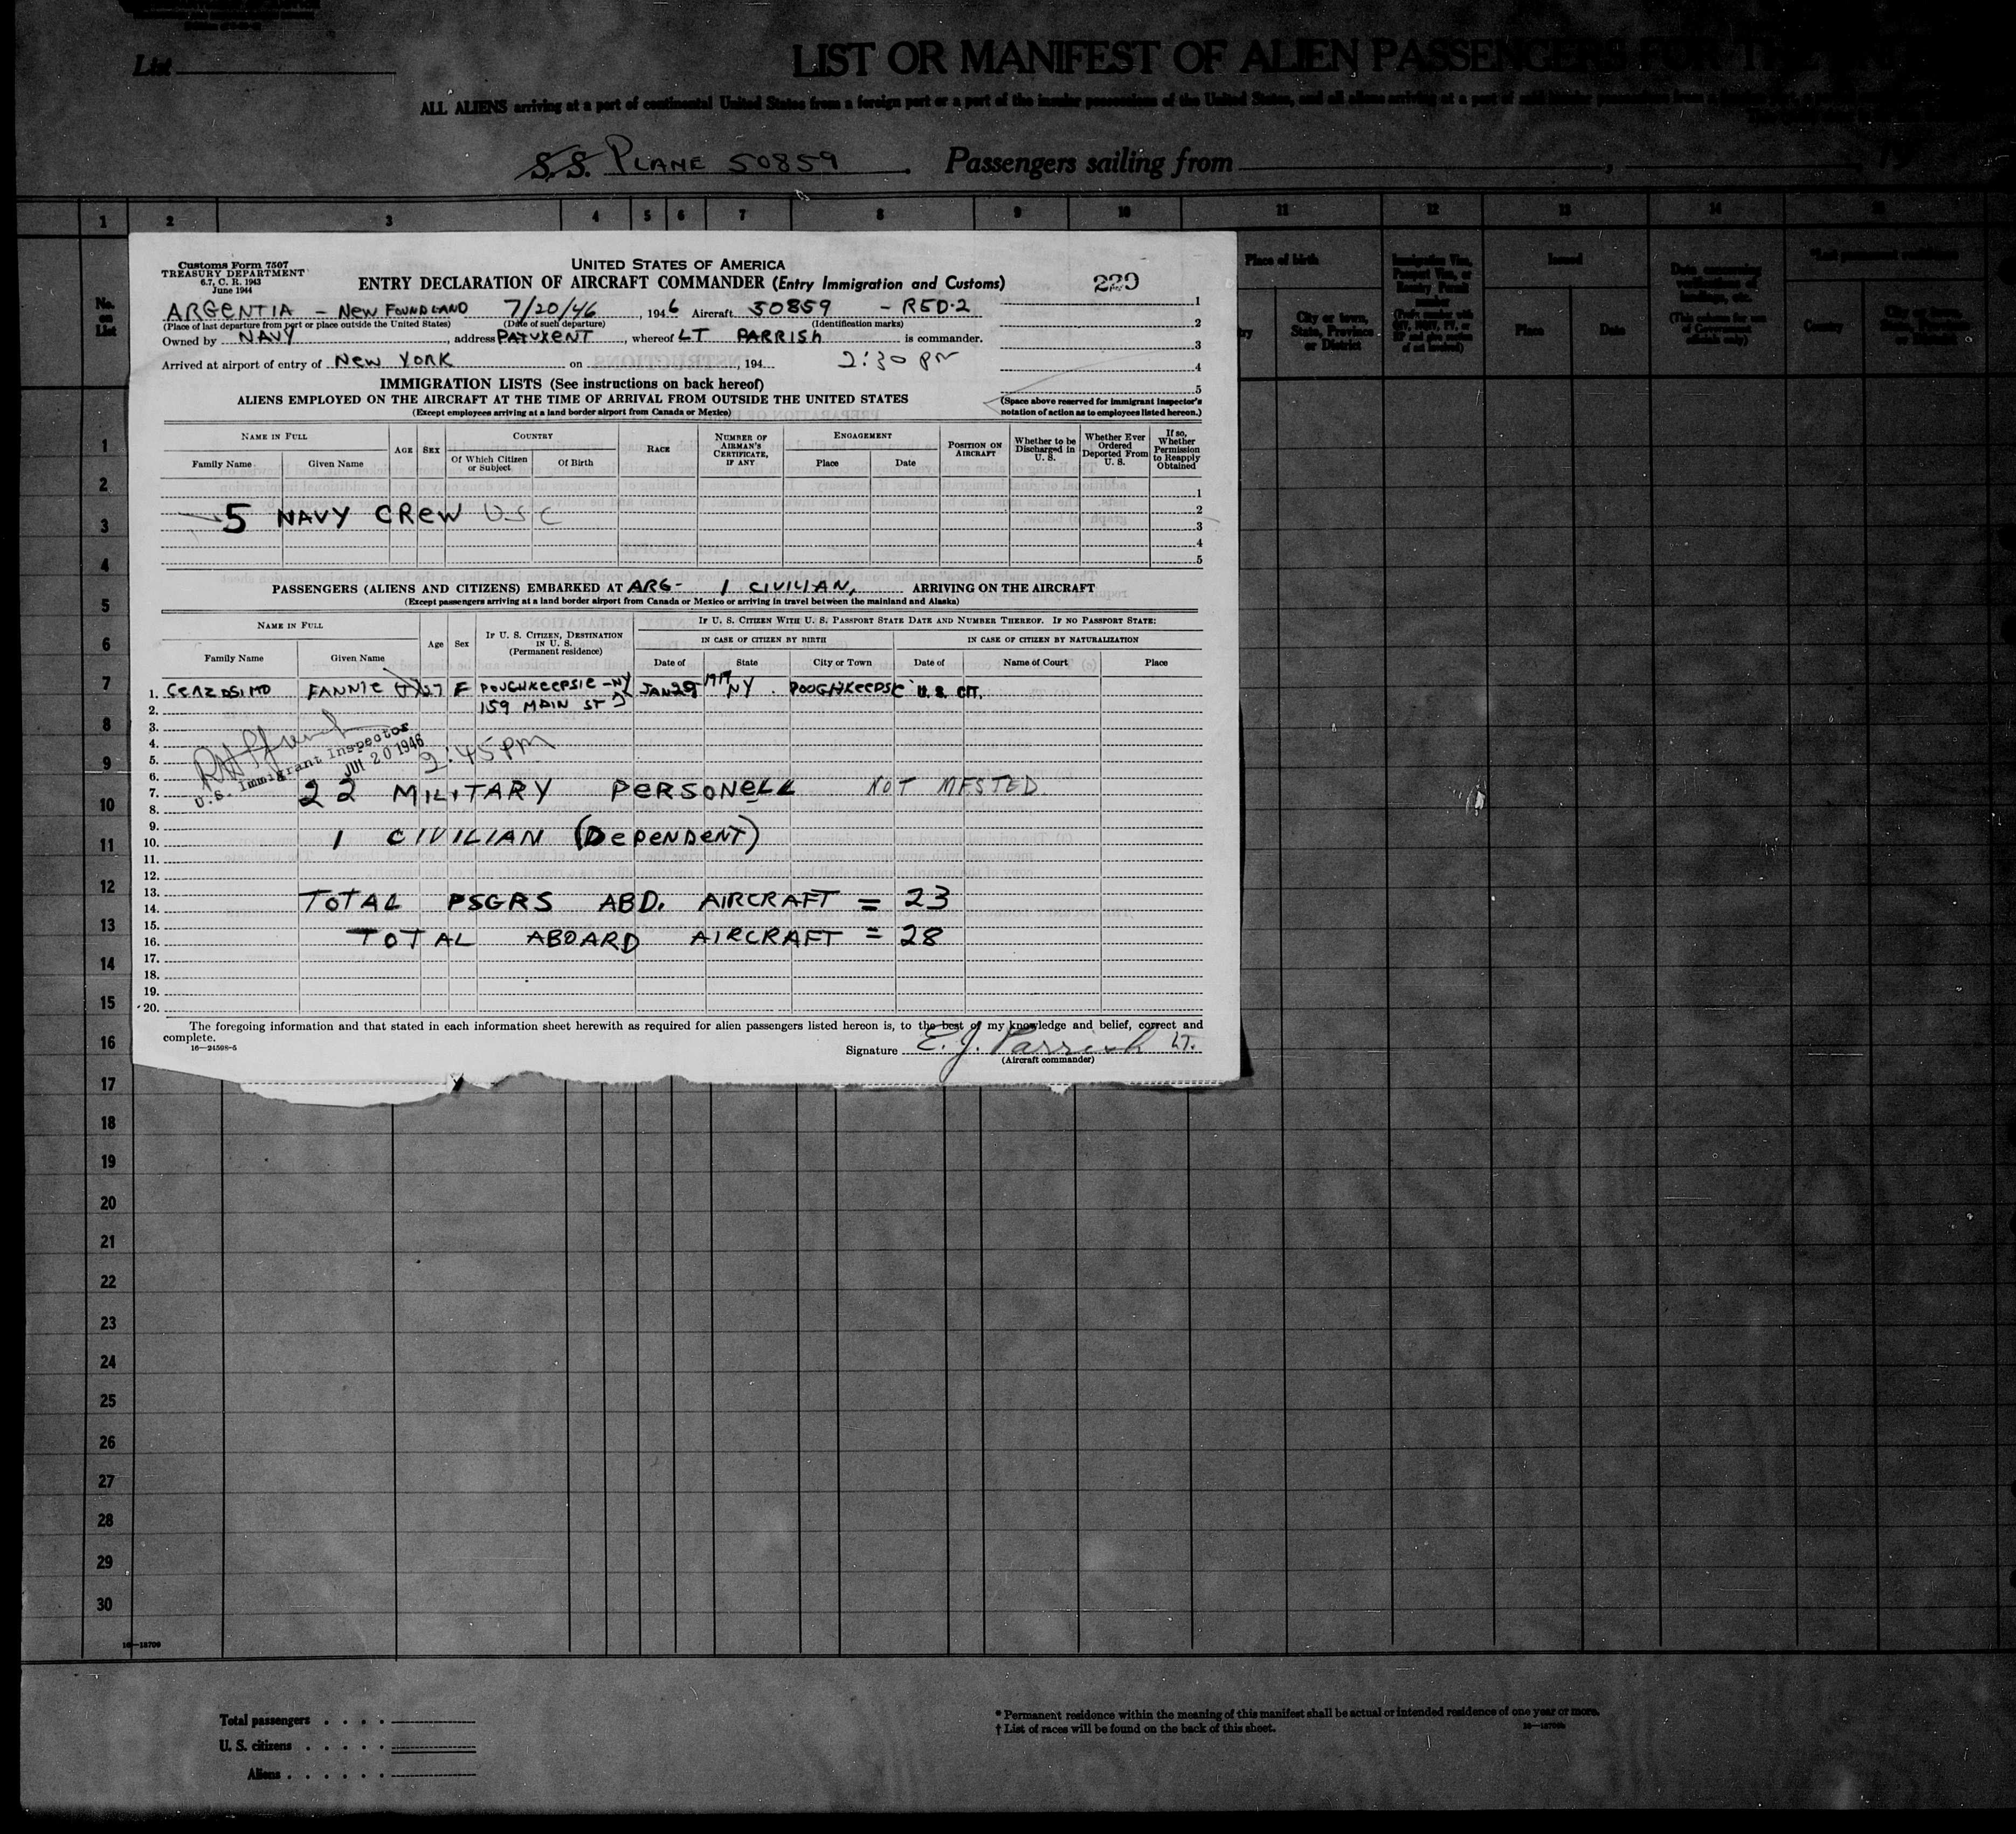 List
LIST OR MANIFEST OF ALIEN PASSENGERS FOR THE
ALL ALIENS arriving at a port of continental United States from a foreign port or a port of the insular possessions of the United States, and all aliens arriving at a port of said insular possessions from a foreign port
S.S. PLANE 50859 Passengers sailing from , 19
1 2 3 4 5 6 7 8 9 10 11 12 13 14 15
No. on List
Place of birth
City or town, State, Province or District
Issued
Place Date
Country
Customs Form 7507
TREASURY DEPARTMENT
6.7, C. R. 1943
June 1944
UNITED STATES OF AMERICA
ENTRY DECLARATION OF AIRCRAFT COMMANDER (Entry Immigration and Customs)
ARGENTIA - NEW FOUNDLAND 7/20/46, 1946 Aircraft 50859 - R5D-2
(Place of last departure from port or place outside the United States) (Date of such departure) (Identification marks)
Owned by NAVY, address PATUXENT, whereof LT PARRISH is commander.
Arrived at airport of entry of NEW YORK on , 194 2:30 PM
1
2
3
4
5
(Space above reserved for immigrant inspector's notation of action as to employees listed hereon.)
IMMIGRATION LISTS (See instructions on back hereof)
ALIENS EMPLOYED ON THE AIRCRAFT AT THE TIME OF ARRIVAL FROM OUTSIDE THE UNITED STATES
(Except employees arriving at a land border airport from Canada or Mexico)
NAME IN FULL
Family Name Given Name
AGE SEX
COUNTRY
Of Which Citizen or Subject Of Birth
RACE
NUMBER OF AIRMAN'S CERTIFICATE, IF ANY
ENGAGEMENT
Place Date
POSITION ON AIRCRAFT
Whether to be Discharged in U. S.
Whether Ever Ordered Deported From U. S.
If so, Whether Permission to Reapply Obtained
1
2
5 NAVY CREW USC
3
4
5
PASSENGERS (ALIENS AND CITIZENS) EMBARKED AT ARG- 1 CIVILIAN, ARRIVING ON THE AIRCRAFT
(Except passengers arriving at a land border airport from Canada or Mexico or arriving in travel between the mainland and Alaska)
NAME IN FULL
Family Name Given Name
Age Sex
IF U. S. CITIZEN, DESTINATION IN U. S.
(Permanent residence)
IF U. S. CITIZEN WITH U. S. PASSPORT STATE DATE AND NUMBER THEREOF. IF NO PASSPORT STATE:
IN CASE OF CITIZEN BY BIRTH IN CASE OF CITIZEN BY NATURALIZATION
Date of State City or Town Date of Name of Court Place
1. FANNIE 27 F POUGHKEEPSIE -NY JAN 29 1919 NY. POUGHKEEPSIE U.S. CIT.
2. 159 MAIN ST
3.
4.
5.
U.S. Immigrant Inspector
JUL 20 1946
2:45 PM
6.
7. 22 MILITARY PERSONELL NOT MFSTED.
8.
9.
10. 1 CIVILIAN (DEPENDENT)
11.
12.
13.
14. TOTAL PSGRS ABD. AIRCRAFT = 23
15.
16. TOTAL ABOARD AIRCRAFT = 28
17.
18.
19.
20.
The foregoing information and that stated in each information sheet herewith as required for alien passengers listed hereon is, to the best of my knowledge and belief, correct and complete.
16—24598-5
Signature E. J. Parrish LT.
(Aircraft commander)
1
2
3
4
5
6
7
8
9
10
11
12
13
14
15
16
17
18
19
20
21
22
23
24
25
26
27
28
29
30
16—18709
Total passengers . . . .
U. S. citizens . . . . .
Aliens . . . . . .
* Permanent residence within the meaning of this manifest shall be actual or intended residence of one year or more.
† List of races will be found on the back of this sheet.